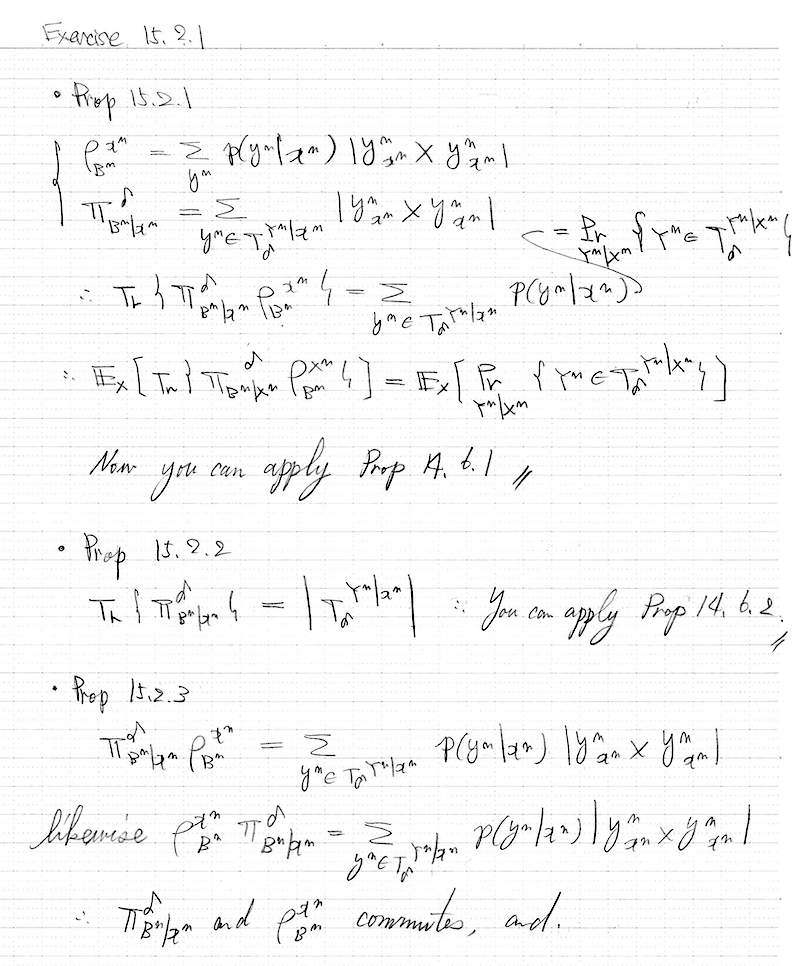 Exercise 15.2.1
• Prop 15.2.1
ρ_{B^n}^{x^n} = Σ_{y^n} p(y^n|x^n) |y^n_{x^n} X y^n_{x^n}|
Π^δ_{B^n|x^n} = Σ_{y^n ∈ T_δ^{Y^n|x^n}} |y^n_{x^n} X y^n_{x^n}|
= Pr_{Y^n|X^n} { Y^n ∈ T_δ^{Y^n|X^n} }
∴ Tr { Π^δ_{B^n|x^n} ρ_{B^n}^{x^n} } = Σ_{y^n ∈ T_δ^{Y^n|x^n}} p(y^n|x^n)
∴ 𝔼_X [ Tr { Π^δ_{B^n|X^n} ρ_{B^n}^{X^n} } ] = 𝔼_X [ Pr_{Y^n|X^n} { Y^n ∈ T_δ^{Y^n|X^n} } ]
Now you can apply Prop 6.1 //
• Prop 15.2.2
Tr { Π^δ_{B^n|x^n} } = | T_δ^{Y^n|x^n} | ∴ You can apply Prop 14.6.2. //
• Prop 15.2.3
Π^δ_{B^n|x^n} ρ_{B^n}^{x^n} = Σ_{y^n ∈ T_δ^{Y^n|x^n}} p(y^n|x^n) |y^n_{x^n} X y^n_{x^n}|
likewise ρ_{B^n}^{x^n} Π^δ_{B^n|x^n} = Σ_{y^n ∈ T_δ^{Y^n|x^n}} p(y^n|x^n) |y^n_{x^n} X y^n_{x^n}|
∴ Π^δ_{B^n|x^n} and ρ_{B^n}^{x^n} commutes, and.